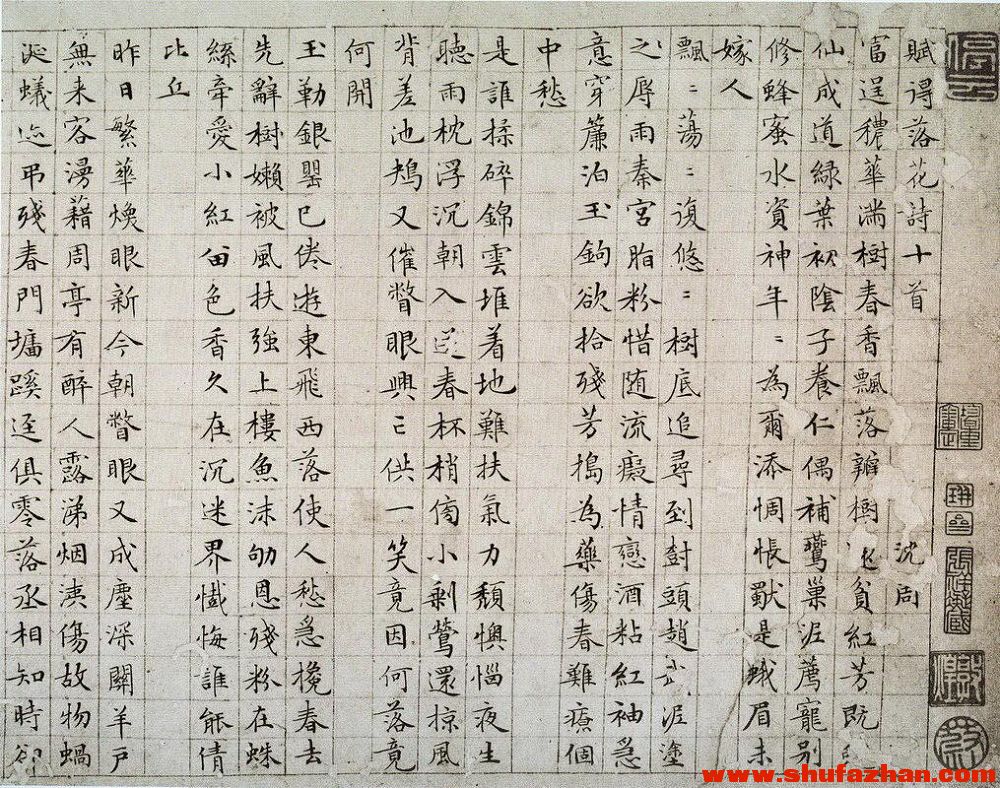 賦得落花詩十首 沈周
富逞穠華滿樹春香飄落瓣樹 貧紅芳既
仙成道綠葉初陰子養仁偶補鶯巢泥薦寵別
修蜂蜜水資神年〻為爾添惆悵獃是蛾眉未
嫁人
飄〻蕩〻復悠〻樹底追尋到 頭趙武泥塗
之辱雨秦宮脂粉惜随流癡情戀酒粘紅袖急
意穿簾泊玉鉤欲拾殘芳搗為藥傷春難療個
中愁
是誰揉碎錦雲堆着地難扶氣力頹懊惱夜生
聽雨枕浮沉朝入 春杯梢傍小剩鶯還掠風
背差池鴂又催瞥眼興亡供一笑竟因何落竟
何開
玉勒銀罌已倦遊東飛西落使人愁急攙春去
先辭樹嬾被風扶強上樓魚沫吻恩殘粉在蛛
絲牽愛小紅留色香久在沉迷界懺悔誰能倩
比丘
昨日繁華煥眼新今朝瞥眼又成塵深關羊戶
無来客漫藉周亭有醉人露涕烟洟傷故物蝸
涎蟻迹弔殘春門墻蹊逕俱零落丞相知時卻
www.shufazhan.com